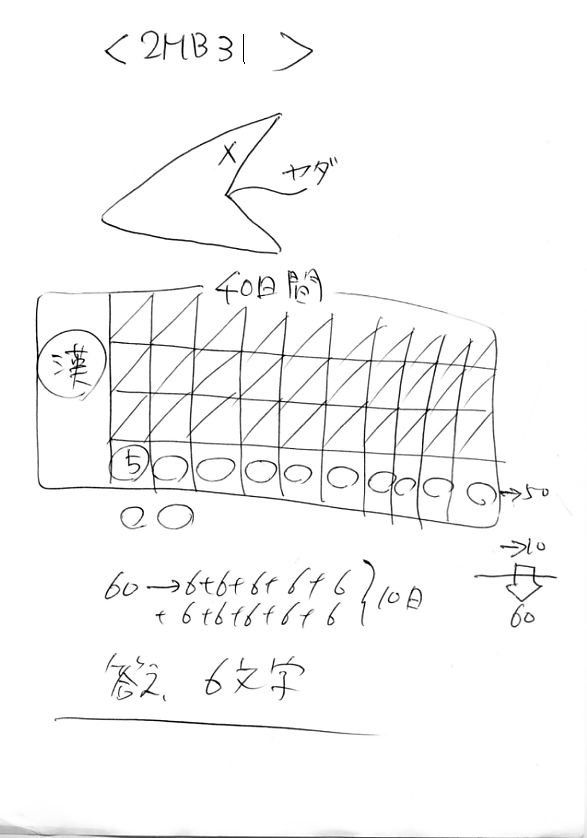 <2MB31>
x
ヤダ
40日間
漢
5
→50
→10
60
60→6+6+6+6+6
+6+6+6+6+6 }10日
答え、6文字